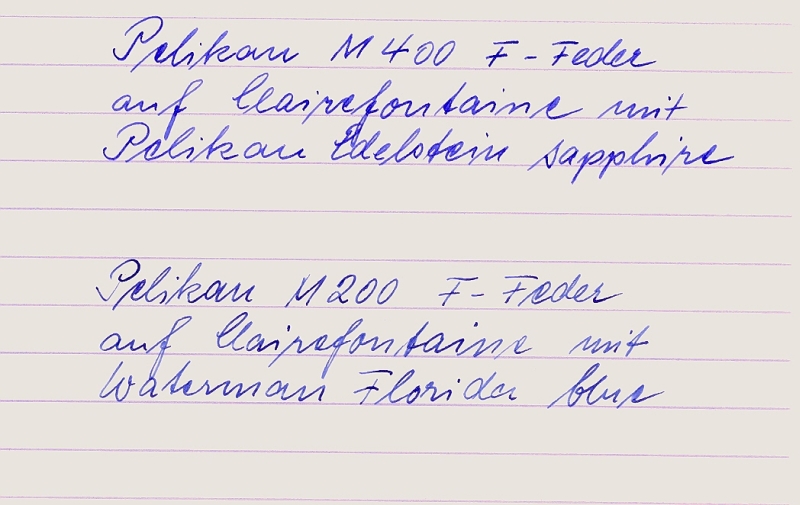 Pelikan M400 F-Feder
auf Clairefontaine mit
Pelikan Edelstein sapphire
Pelikan M200 F-Feder
auf Clairefontaine mit
Waterman Florida blue